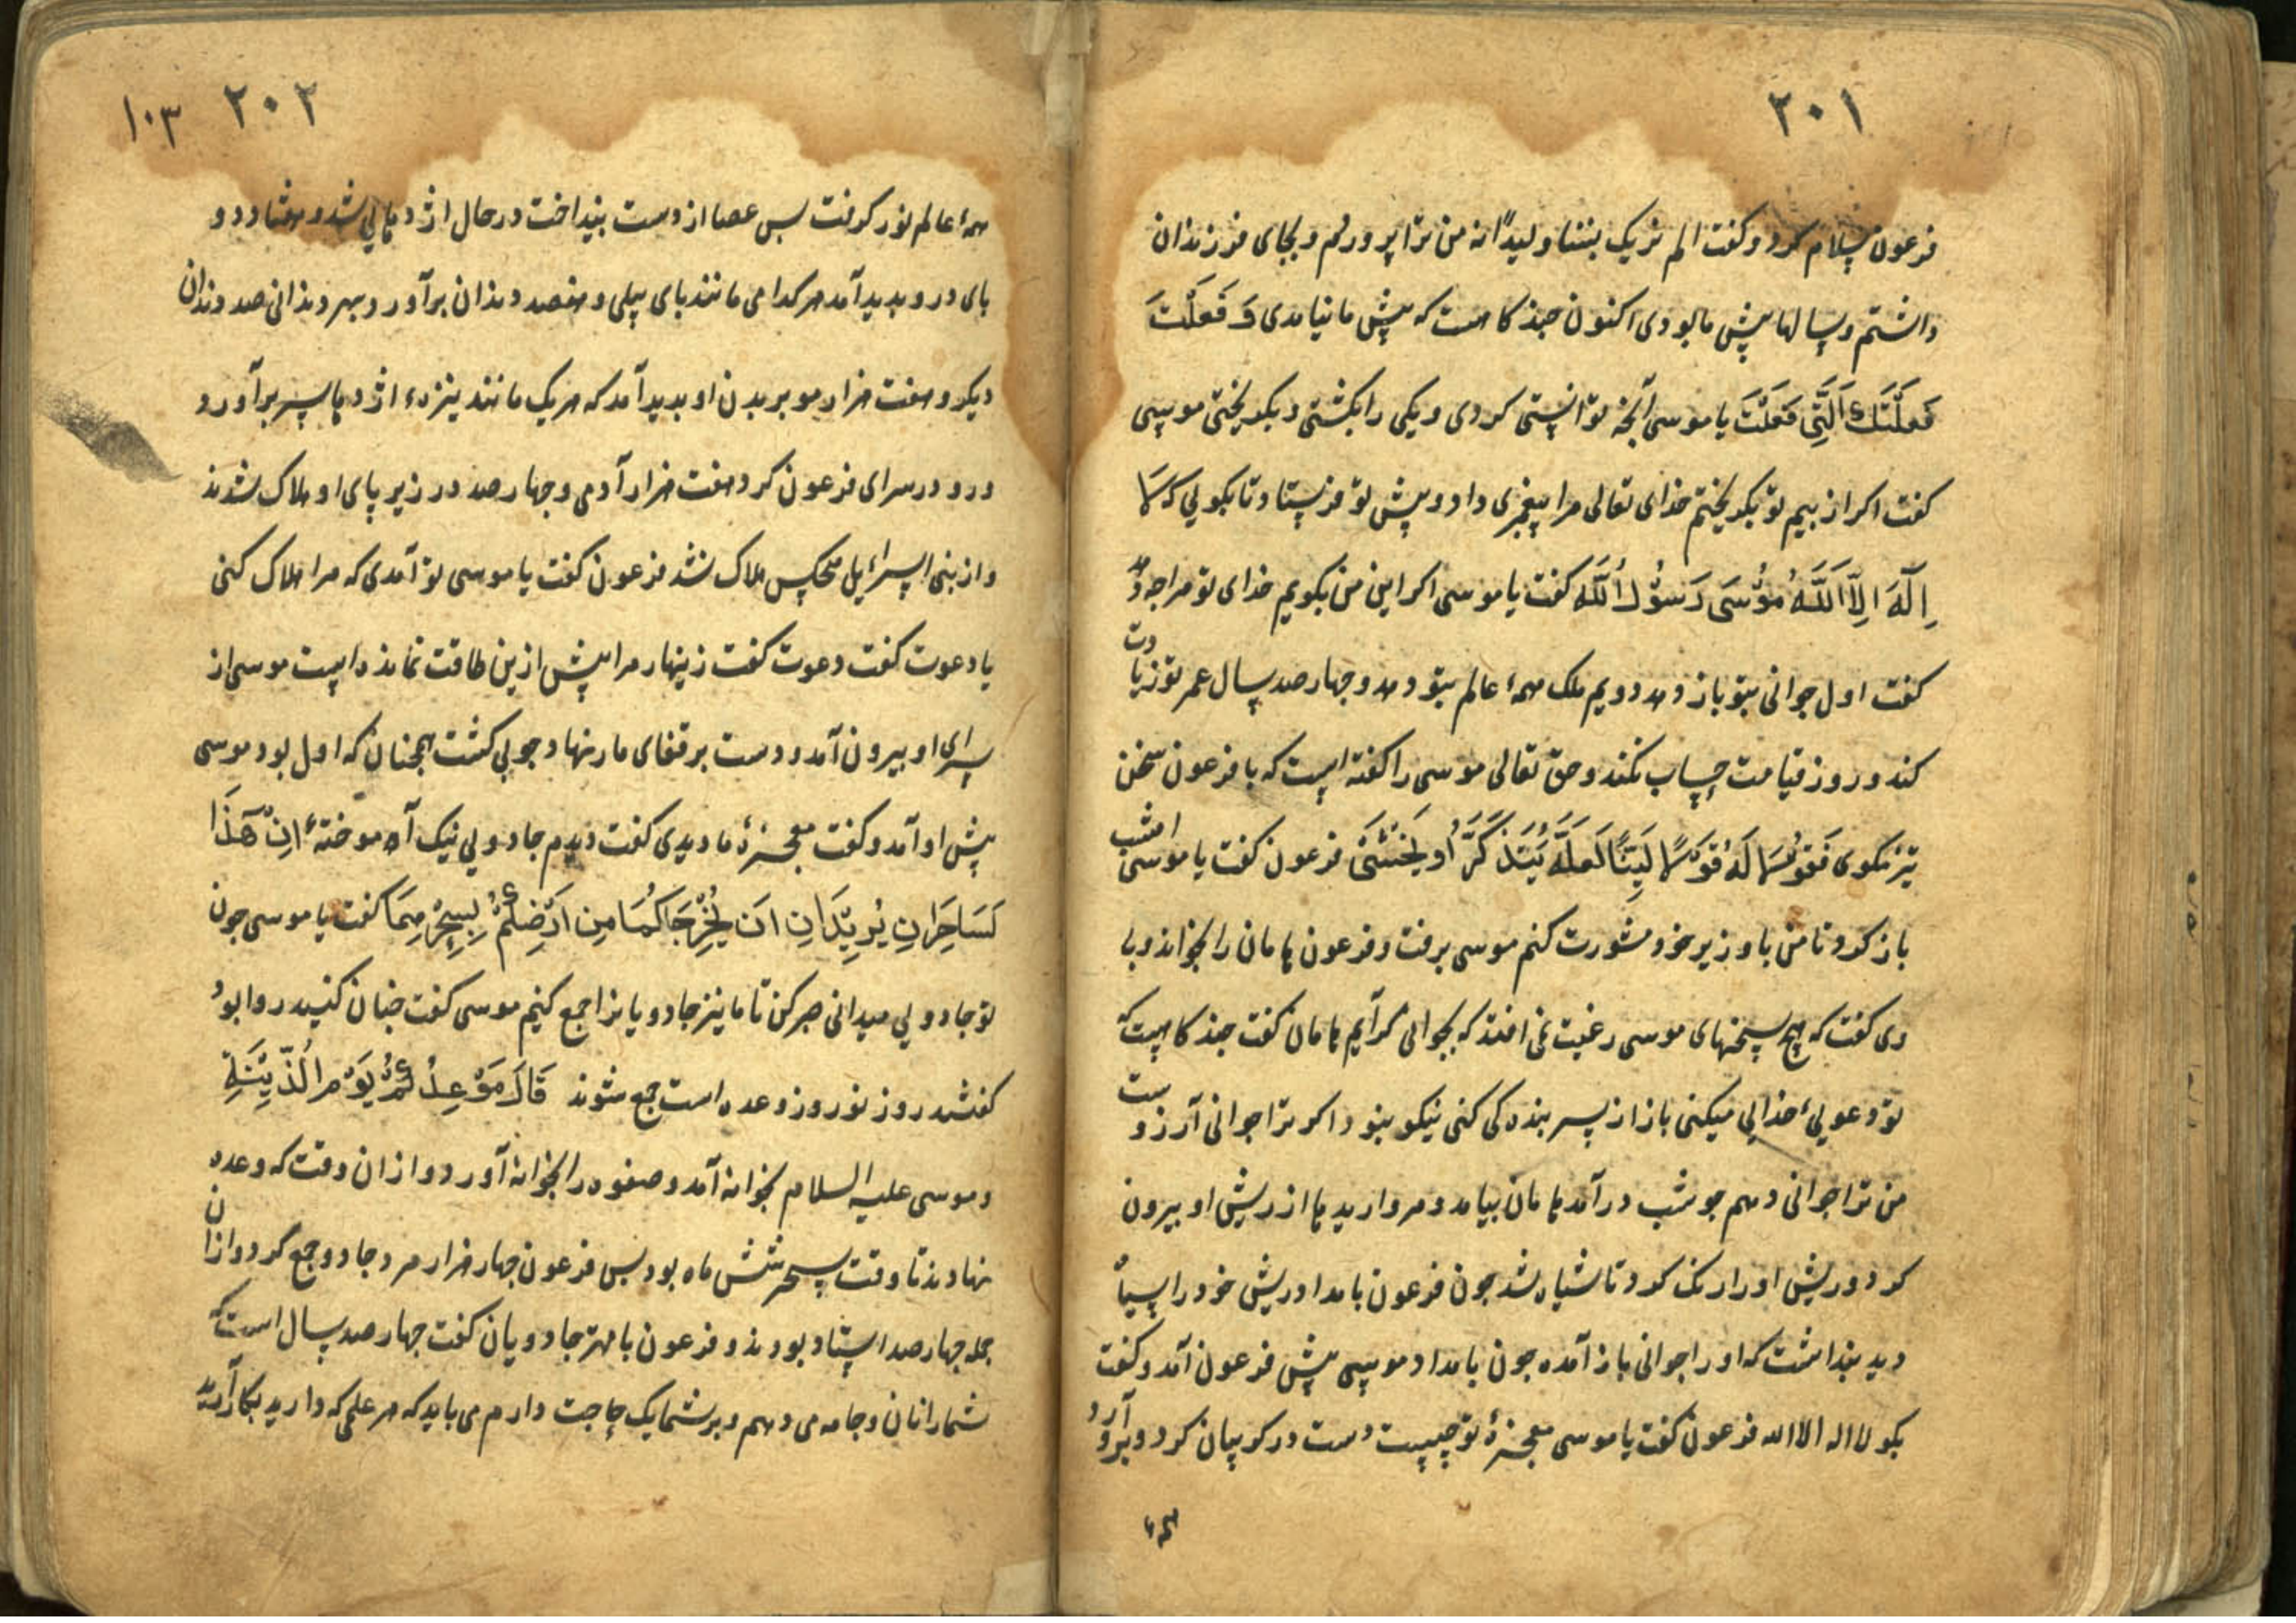 ۲۰۱
فرعون سلام کرد و کفت الم نربک بننا ولیداً نه من ترا پروردم و بجای فرزندان
داشتم و سالها پیش ما بودی اکنون چند کاهست که پیش ما نیامدی وَ فَعَلْتَ
فَعلَتَكَ اَلَّتِی فَعَلْتَ یا موسی آنچه توانستی کردی و یکی را بکشتی و بکریختی موسی
کفت اکر از بیم تو بکریختم خدای تعالی مرا پیغمبری داد و پیش تو فرستاد تا بکویی که لَا
اِلٰهَ اِلَّا اَللَّهُ مُوْسَی رَسُوْلُ اَللَّه کفت یا موسی اکر این من بکویم خدای تو مرا چه دهد
کفت اول جوانی بتو باز دهد دویم ملک همهٔ عالم بتو دهد و چهارصد سال عمر تو زیادت
کند و روز قیامت حساب نکند و حق تعالی موسی را کفته است که با فرعون سخن
تیز نکوی فَقوُلَا لَهُ قَوْلًا لَیِّنًا لَعَلَّهُ یَتَذَكَّرُ اَو یَخْشَی فرعون کفت یا موسی امشب
باز کرد تا من با وزیر خود مشورت کنم موسی برفت و فرعون هامان را بخواند و با
وی کفت که هیچ بسخنهای موسی رغبت نمی افتد که بجوانی کرآیم هامان کفت چند کاهست که
تو دعویٔ خدایی میکنی باز از پسر بنده کی کنی نیکو نبود اکر ترا جوانی آرزوست
من ترا جوانی دهم چو شب درآمد هامان بیامد و مروارید ها از ریش او بیرون
کرد و ریش او را رنک کرد تا سیاه شد چون فرعون بامداد ریش خود را سیاه
دید پنداشت که او را جوانی باز آمده چون بامداد موسی پیش فرعون آمد و کفت
بکو لا اله الا الله فرعون کفت یا موسی معجزهٔ تو چیست دست در کریبان کرد و برون آورد
همهٔ
۲۰۲ ۱۰۳
همهٔ عالم نور کرفت پس عصا از دست بینداخت در حال اژدهایی شد و هفتاد و دو
پای در و بدید آمد هر کدامی مانند پای پیلی و هفصد دندان برآورد و بهر دندانی صد دندان
دیکر و هفت هزار مو بر بدن او بدید آمد که هر یک مانند نیزهٔ اژدها سر برآورد
و رو در سرای فرعون کرد هفت هزار آدمی و چهار صد در زیر پای او هلاک شدند
و از بنی اسرائیل هیچکس هلاک نشد فرعون کفت یا موسی تو آمدی که مرا هلاک کنی
یا دعوت کفت دعوت کفت زینهار مرا بیش ازین طاقت نمانده است موسی از
سرای او بیرون آمد و دست بر قفای مار نهاد چوبی کشت همچنان که اول بود موسی
پیش او آمد و کفت معجزهٔ ما دیدی کفت دیدم جادویی نیک آموختهٔ اِنْ هَذَا
لَسَاحِرَانِ یُرِیْدَانِ اَن یُخْرِجَاکُمَا مِن اَرْضِكُمْ بِسِحْرِهِمَا کفت یا موسی چون
تو جادویی میدانی صبر کن تا ما نیز جادویانرا جمع کنیم موسی کفت چنان کنید روا بود
کفتند روز نوروز وعده است جمع شوند قَالَ مَوْعِدُكُمْ یَوْمُ الْزِّیْنَةِ
و موسی علیه السلام بخانه آمد و صفوه را بخانه آورد و از ان وقت که وعده
نهادند تا وقت سحر شش ماه بود پس فرعون چهار هزار مرد جادو جمع کرد و از ان
جمله چهارصد استاد بودند و فرعون با مهتر جادویان کفت چهارصد سال است که
شمارا نان و جامه می دهم و بر شما یک حاجت دارم می باید که هر علمی که دارید بکار آرید